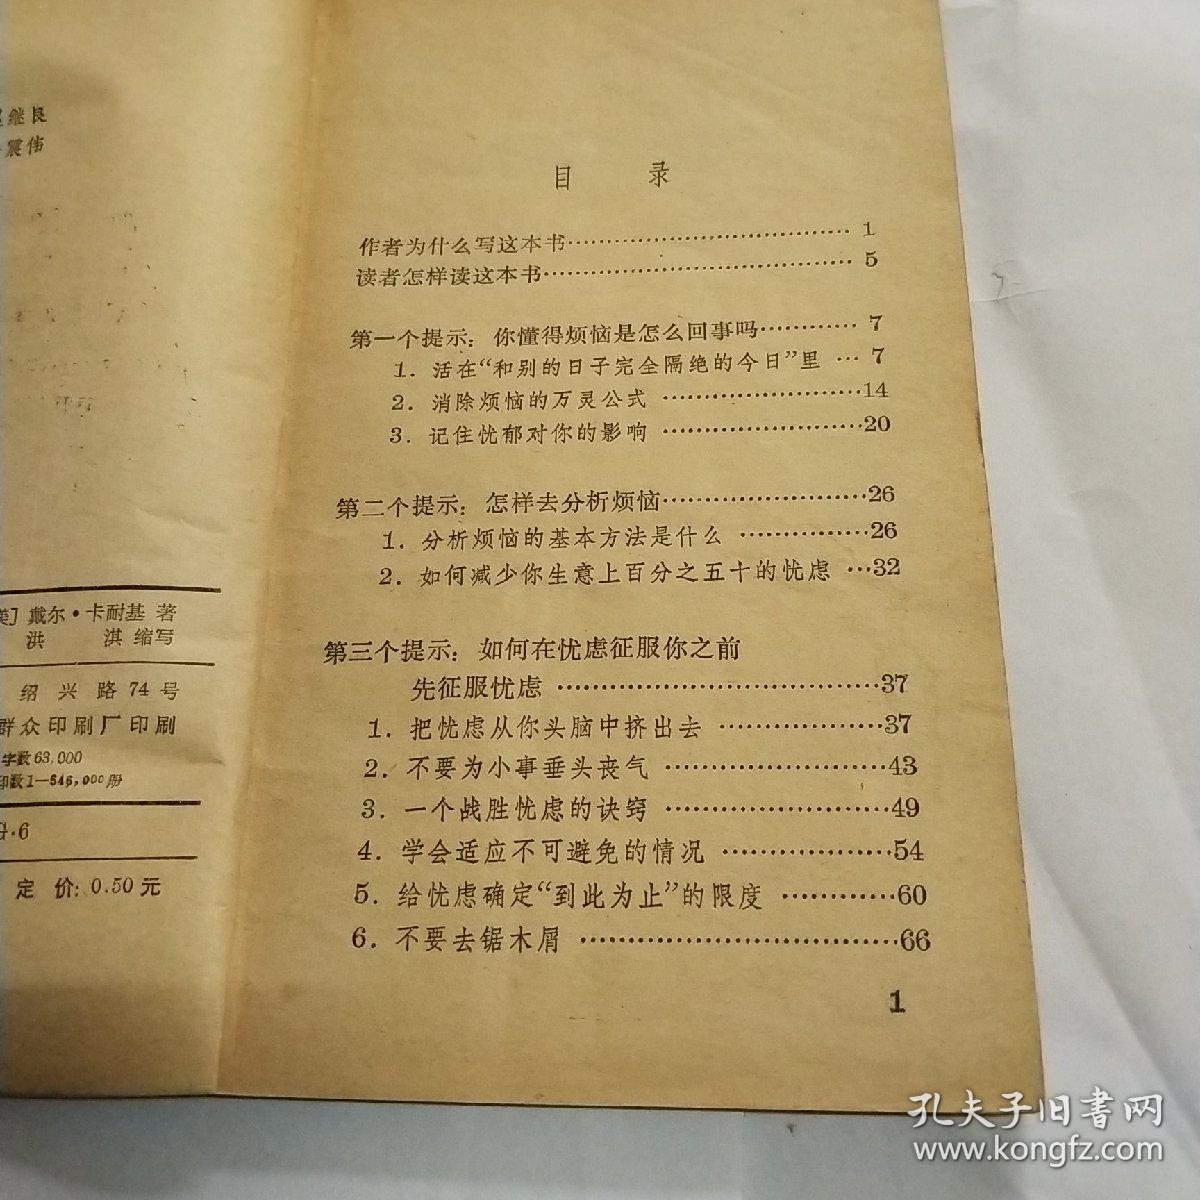 继良
震伟
美] 戴尔·卡耐基 著
洪 淇 缩写
绍兴路74号
群众印刷厂印刷
字数63,000
印数1—546,000册
·6
定价:0.50元
目 录
作者为什么写这本书………………………………1
读者怎样读这本书…………………………………5
第一个提示:你懂得烦恼是怎么回事吗…………7
1.活在“和别的日子完全隔绝的今日”里…7
2.消除烦恼的万灵公式……………………14
3.记住忧郁对你的影响……………………20
第二个提示:怎样去分析烦恼……………………26
1.分析烦恼的基本方法是什么……………26
2.如何减少你生意上百分之五十的忧虑…32
第三个提示:如何在忧虑征服你之前
先征服忧虑…………………………………37
1.把忧虑从你头脑中挤出去………………37
2.不要为小事垂头丧气……………………43
3.一个战胜忧虑的诀窍……………………49
4.学会适应不可避免的情况………………54
5.给忧虑确定“到此为止”的限度…………60
6.不要去锯木屑……………………………66
1
孔夫子旧书网
www.kongfz.com